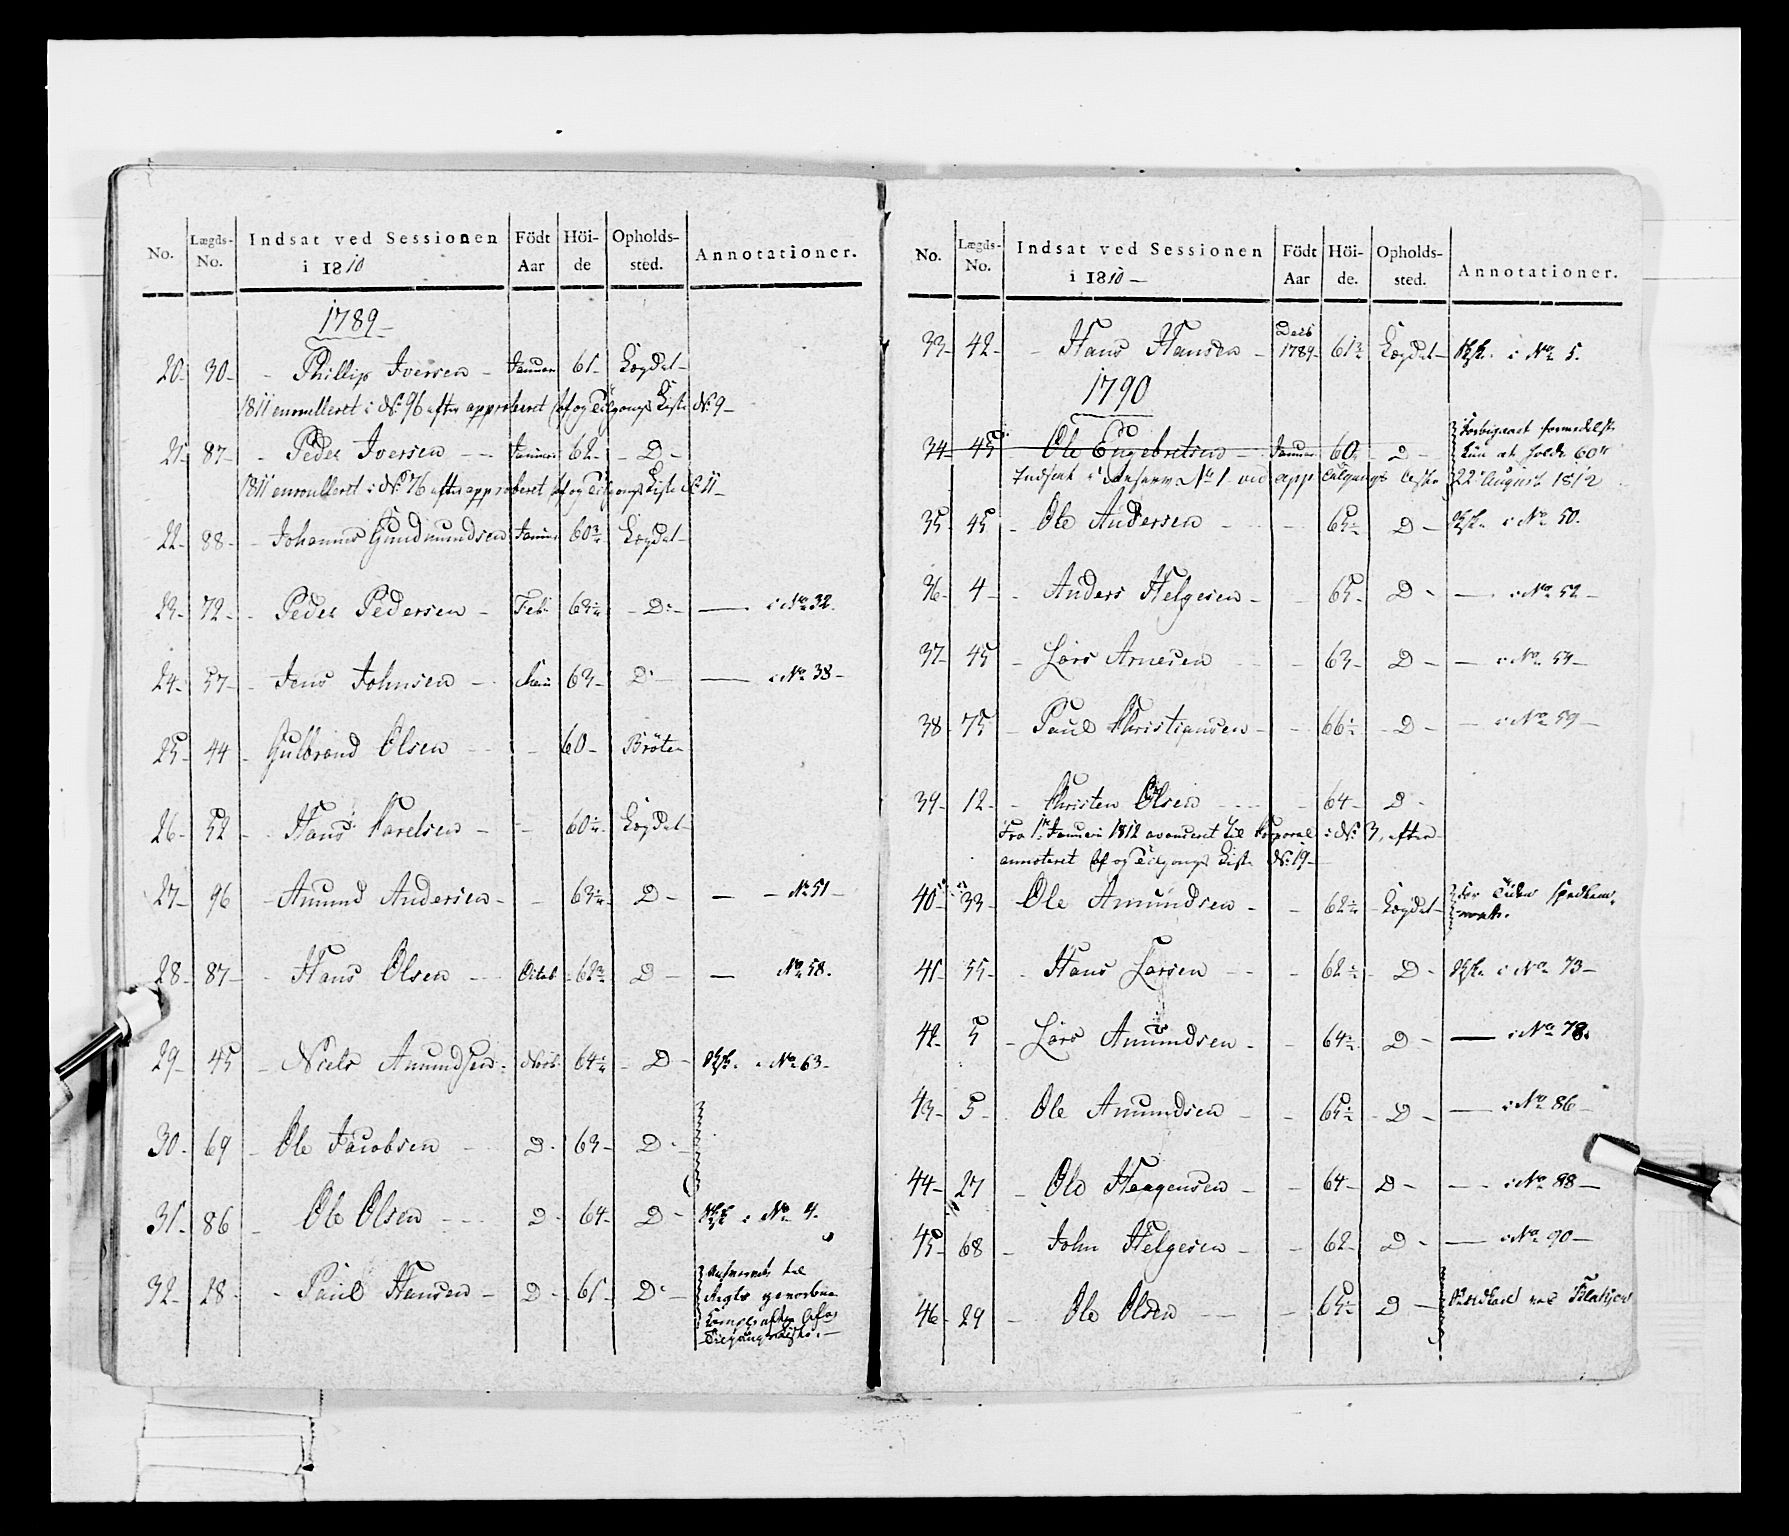 No. Lægds-No. Indsat ved Sessionen i 1810 Födt Aar Höi-de Opholds-sted. Annotationer.
1789
20 30 Phillip Iversen Januar 61 Lægdet
1811 enroulleret i No 96 efter approberet Af og Tilgangs Liste No 9
21 87 Peder Iversen Januar 62 D
1811 enroulleret i No 76 efter approberet Af og Tilgangs Liste No 11
22 88 Johannes Gundmundsen Januar 60 3/4 Lægdet
23 72 Peder Pedersen Feb 63 1/4 D i No 32.
24 57 Jens Johnsen 63 D i No 38
25 44 Gulbrand Olsen 60 Bröten
26 52 Hans Karelsen 60 1/4 Lægdet
27 96 Amund Andersen 63 1/4 D No 51
28 87 Hans Olsen Octob 62 3/4 D No 58.
29 45 Niels Amundsen 64 1/4 D i No 63
30 69 Ole Jacobsen D 63 D
31 86 Ole Olsen D 64 D i No 4.
32 28 Paul Hansen D 61 D
Tilgangsliste.
No. Lægds-No. Indsat ved Sessionen i 1810 Födt Aar Höi-de. Opholds-sted. Annotationer.
33 42 Hans Hansen Decb 1789 61 3/4 Lægdet i No 5.
1790
34 45 Ole Engebretsen Januar 60 D Forbigaaet formedelst
kun at holde 60"
Indsat i No 1 ved app Tilgangs Liste 22 August 1812
35 45 Ole Andersen 65 1/4 D i No 50.
36 4 Anders Helgesen 65 D i No 52
37 45 Lars Arnesen 63 D i No 54
38 75 Paul Christiansen 66 1/4 D i No 59
39 12 Christen Olsen 64 D
Fra 1te Januari 1812 avanceret til Korporal i No 3, efter
annoteret Af og Tilgangs Liste No 19
40 33 Ole Amundsen 62 1/4 Lægdet For Tiden
41 55 Hans Larsen 62 1/4 D i No 73
42 5 Lars Amundsen 64 1/4 D i No 78.
43 5 Ole Amundsen 65 1/4 D i No 86
44 27 Ole Haagensen 64 D i No 88
45 68 John Helgesen 62 D i No 90
46 29 Ole Olsen 65 1/4 D